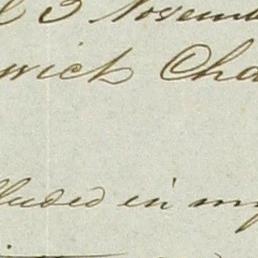 3 Novem
wich Cha
luded in my